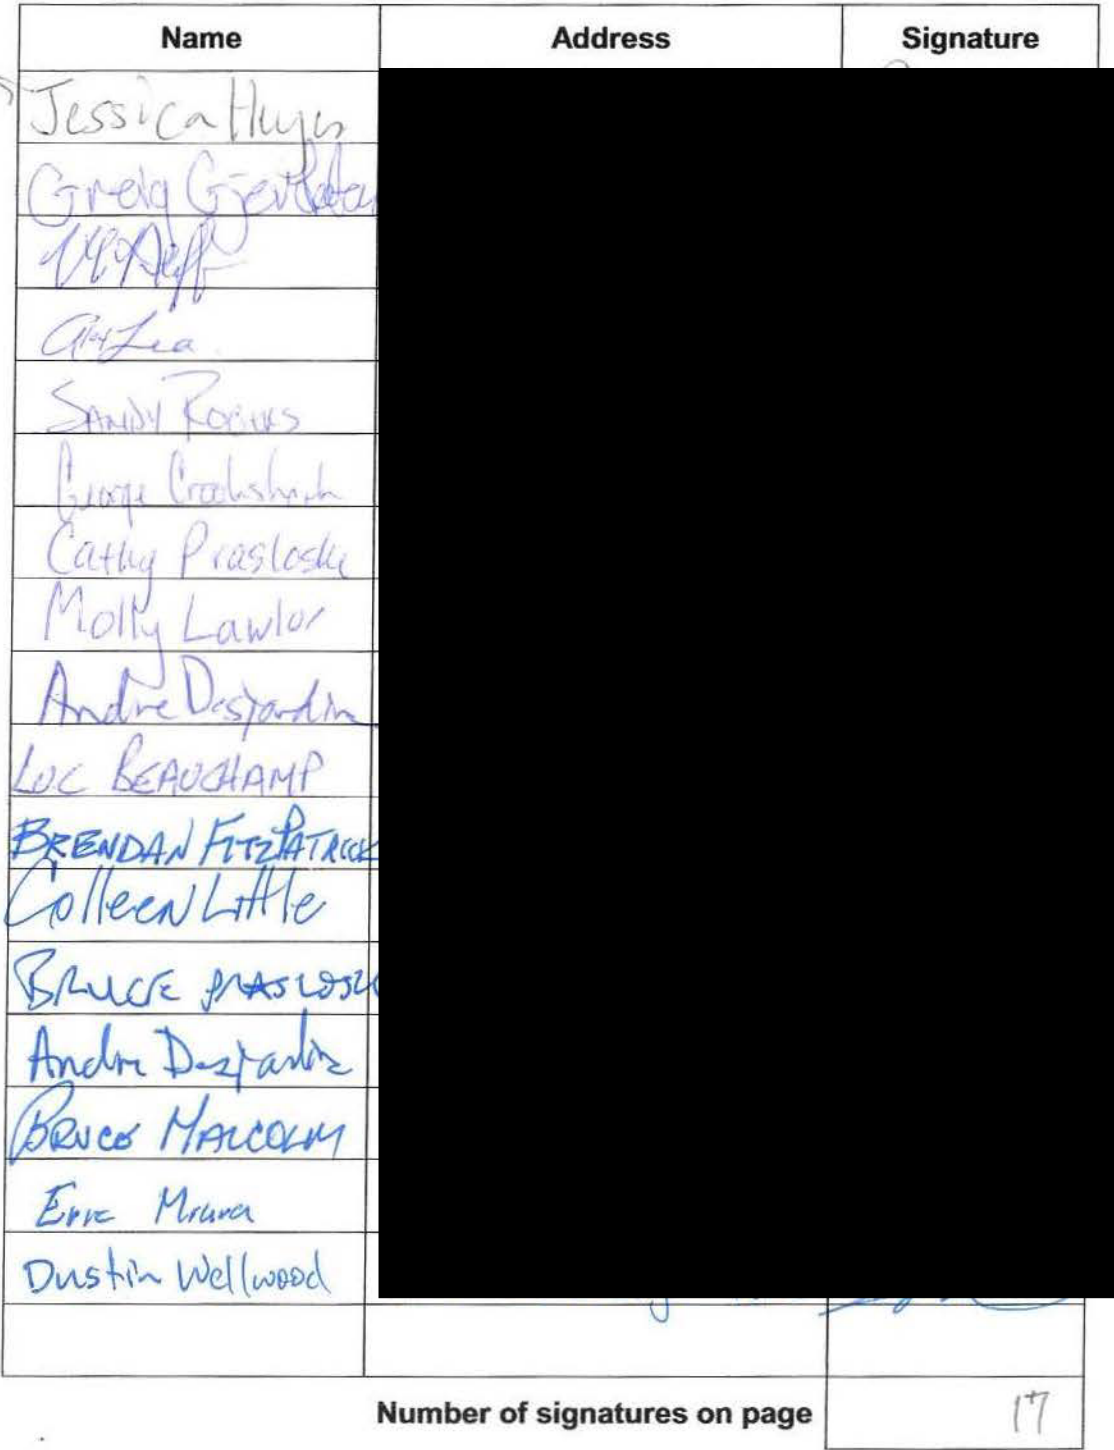 Name Address Signature
Jessica
Greig
Art Lea
SANDY ROBINS
George Crookshank
Cathy Prasloski
Molly Lawlor
Andre Desjardin
LUC BEAUCHAMP
BRENDAN FITZPATRICK
Colleen Little
BRUCE PRASLOSKI
Andre Desjardin
BRUCE MALCOLM
Eric Miura
Dustin Wellwood
Number of signatures on page 17